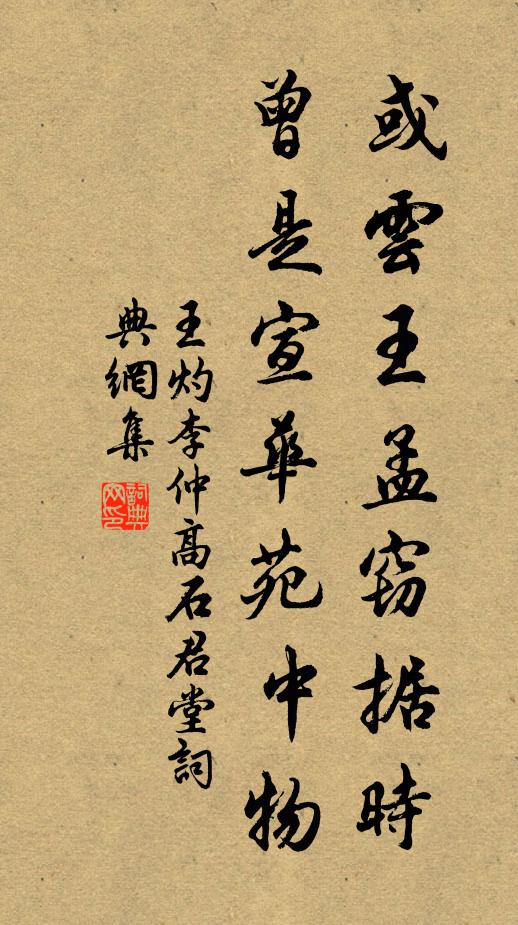 或雲王孟窃据時
曾是宣華苑中物
王灼李仲高石君堂詞
典網集
詞典
网印